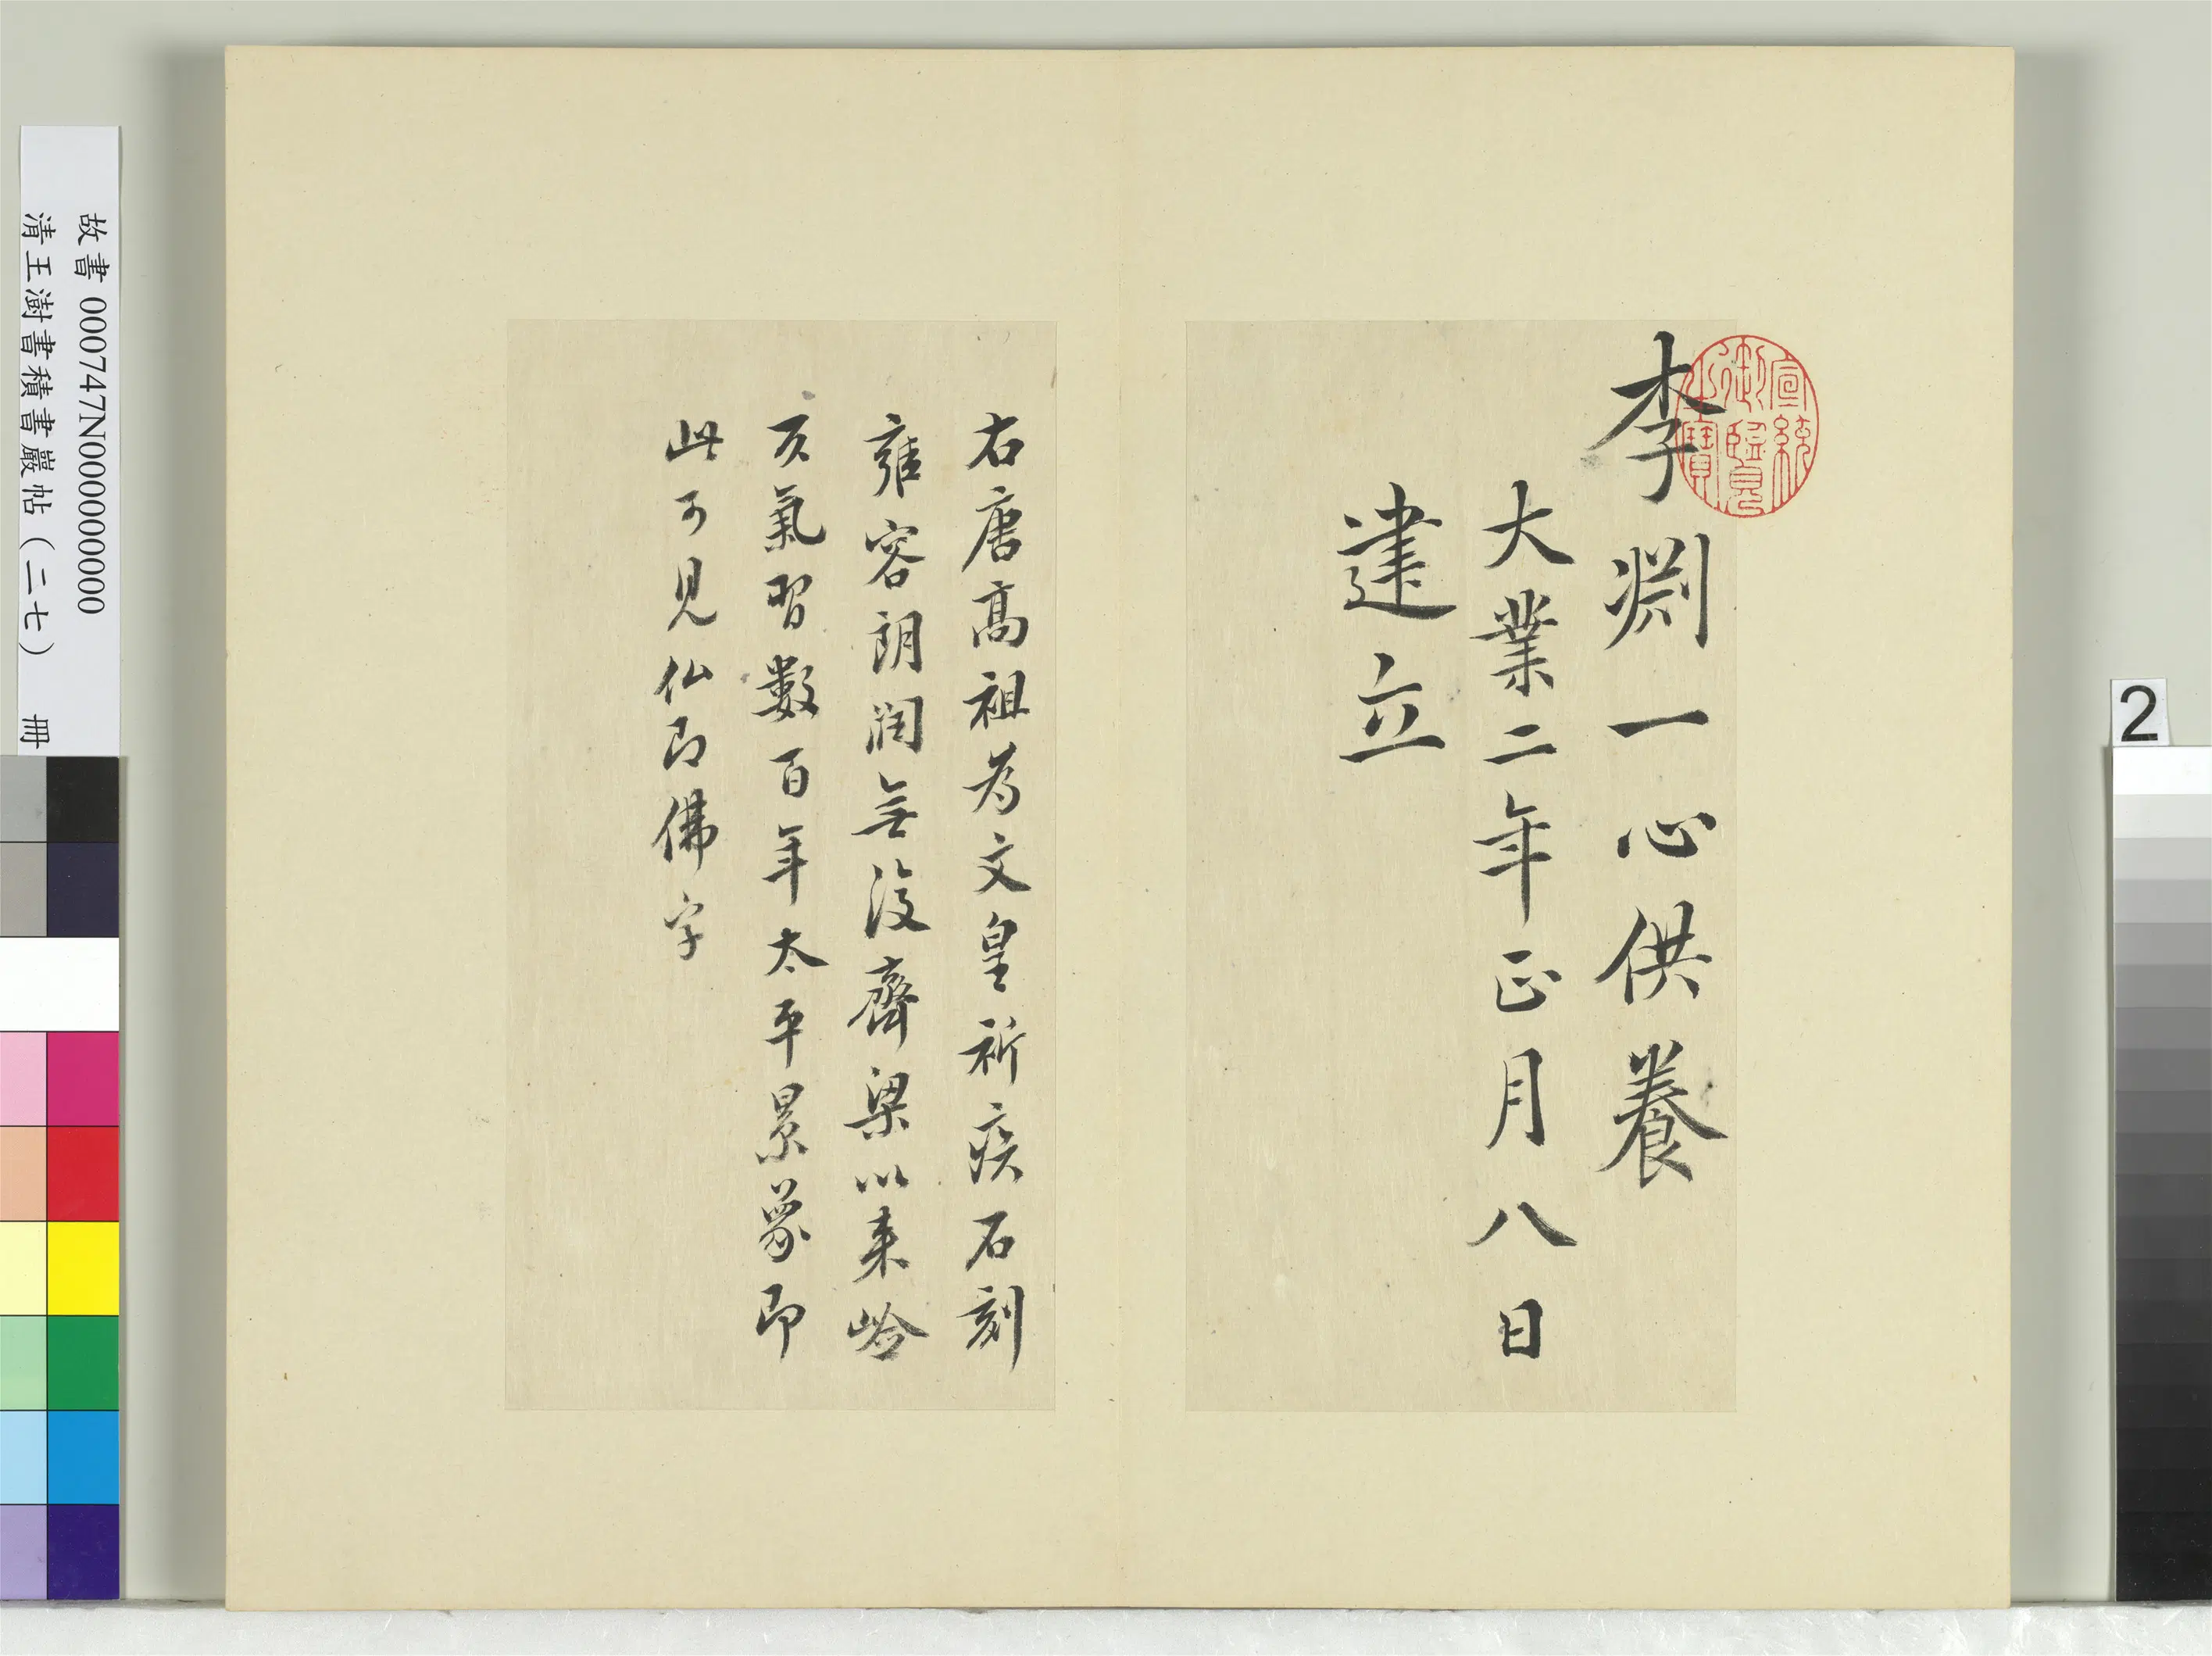 宣統御覽之寶
李渊一心供養
大業二年正月八日
建立
右唐高祖為文皇祈疾石刻
雍容朗潤無復齊梁以來嶮
仄氣習數百年太平景象即
此可見仏即佛字
故書 000747N000000000
清王澍書積書巖帖（二七） 冊
2